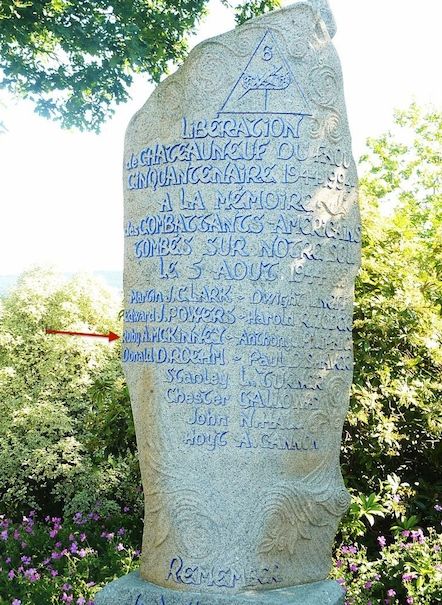 6
LIBÉRATION
de CHATEAUNEUF DU FAOU
CINQUANTENAIRE 1944-1994
A LA MÉMOIRE
des COMBATTANTS AMÉRICAINS
TOMBÉS SUR NOTRE SOL
LE 5 AOUT
Martin J. CLARK - Dwight
Edward J. POWERS - Harold
Ruby A. MCKINNEY - Anthony
Donald D. DREHM - Paul
Stanley L. TURNER
Chester GALLOWAY
John N.
Hoyt A. CANNON
REMEMBER